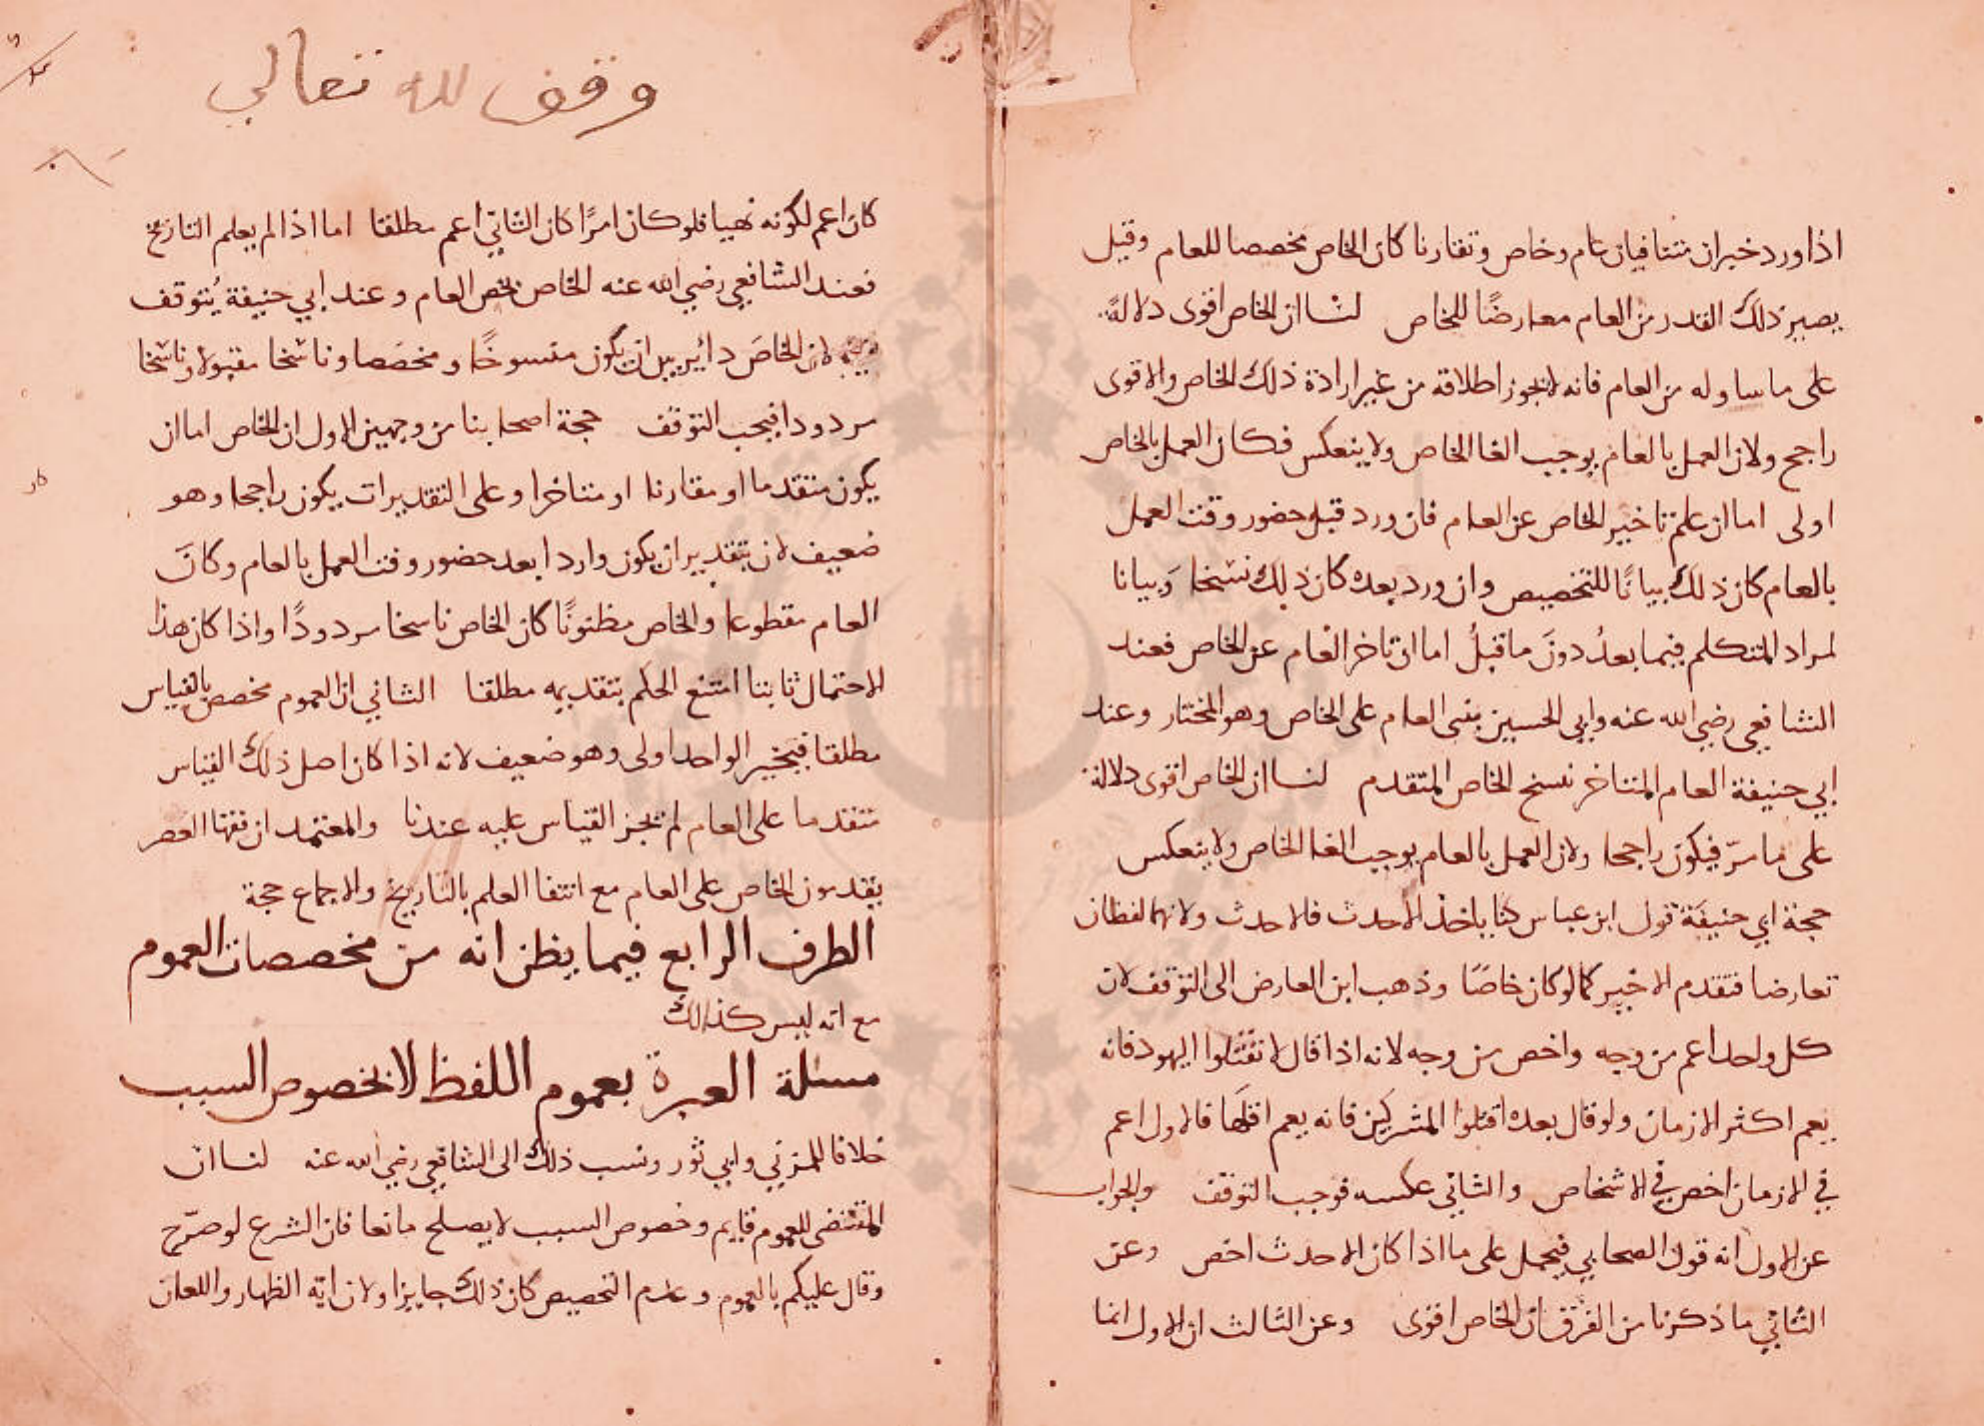 اذا ورد خبران متنافيان عام وخاص وتقارنا كان الخاص مخصصا للعام وقيل
يصير ذلك القدر من العام معارضًا للخاص لنا ان الخاص اقوى دلالةً
على ما ساوله من العام فانه لا يجوز اطلاقه من غير ارادة ذلك الخاص والاقوى
راجح ولان العمل بالعام يوجب الغا الخاص ولا ينعكس فكان العمل بالخاص
اولى اما ان علم تاخير الخاص عن العام فان ورد قبل حضور وقت العمل
بالعام كان ذلك بيانًا للتخصيص وان ورد بعده كان ذلك نسخا وَبيانا
لمراد المتكلم فيما بعدُ دونَ ما قبلُ اما ان تاخر العام عن الخاص فعند
الشافعي رضي الله عنه وابي الحسين يبنى العام على الخاص وهو المختار وعند
ابي حنيفة العام المتاخر نسخ الخاص المتقدم لنا ان الخاص اقوى دلالة
على ما مرّ فيكون راجحا ولان العمل بالعام يوجب الغا الخاص ولا ينعكس
حجة ابي حنيفَة قول ابن عباس كنا ناخذ الاحدث فالاحدث ولانهما لفظان
تعارضا فتقدم الاخير كما لو كان خاصًا وذهب ابن العارض الى التوقف لان
كل واحد اعم من وجه واخص من وجه لانه اذا قال لا تقتلوا اليهود فانه
يعم اكثر الازمان ولو قال بعده اقتلوا المشركين فانه يعم اقلها فالاول اعم
في الازمان اخص في الاشخاص والثاني عكسه فوجب التوقف والجواب
عن الاول انه قول الصحابي فيحمل على ما اذا كان الاحدث اخص وعن
الثاني ما ذكرنا من الفرق ان الخاص اقوى وعن الثالث ان الاول انما
وقف لله تعالى
كان اعم لكونه نهيا فلو كان امرًا كان الثاني اعم مطلقا اما اذا لم يعلم التاريخ
فعند الشافعي رضي الله عنه الخاص يخص العام وعند ابي حنيفة يُتوقف
لان الخاصَ دائر بين ان يكون منسوخًا ومخصَصا وناسخا مقبولا وناسخا
مردودا فيجب التوقف حجة اصحابنا من وجهين الاول ان الخاص اما ان
يكون متقدما او مقارنا او متاخرا وعلى التقديرات يكون راجحا وهو
ضعيف لان بتقدير ان يكون واردا بعد حضور وقت العمل بالعام وكانَ
العام مقطوعا والخاص مظنونًا كان الخاص ناسخا مردودًا واذا كان هذا
الاحتمال ثابتا امتنع الحكم بتقديمه مطلقا الثاني ان العموم مخصص بالقياس
مطلقا فبخبر الواحد اولى وهو ضعيف لانه اذا كان اصل ذلك القياس
متقدما على العام لم يجز القياس عليه عندنا والمعتمد ان فقها العصر
يقدمون الخاص على العام مع انتفا العلم بالتاريخ والاجماع حجة
الطرف الرابع فيما يظن انه من مخصصات العموم
مع انه ليس كذالك
مسئلة العبرة بعموم اللفظ لا بخصوص السبب
خلافا للمزني وابي ثور ونسب ذلك الى الشافعي رضي الله عنه لنا ان
المقتضى للعموم قايم وخصوص السبب لا يصلح مانعا فان الشرع لو صرّح
وقال عليكم بالعموم وعدم التخصيص كان ذلك جايزا ولان اية الظهار واللعان